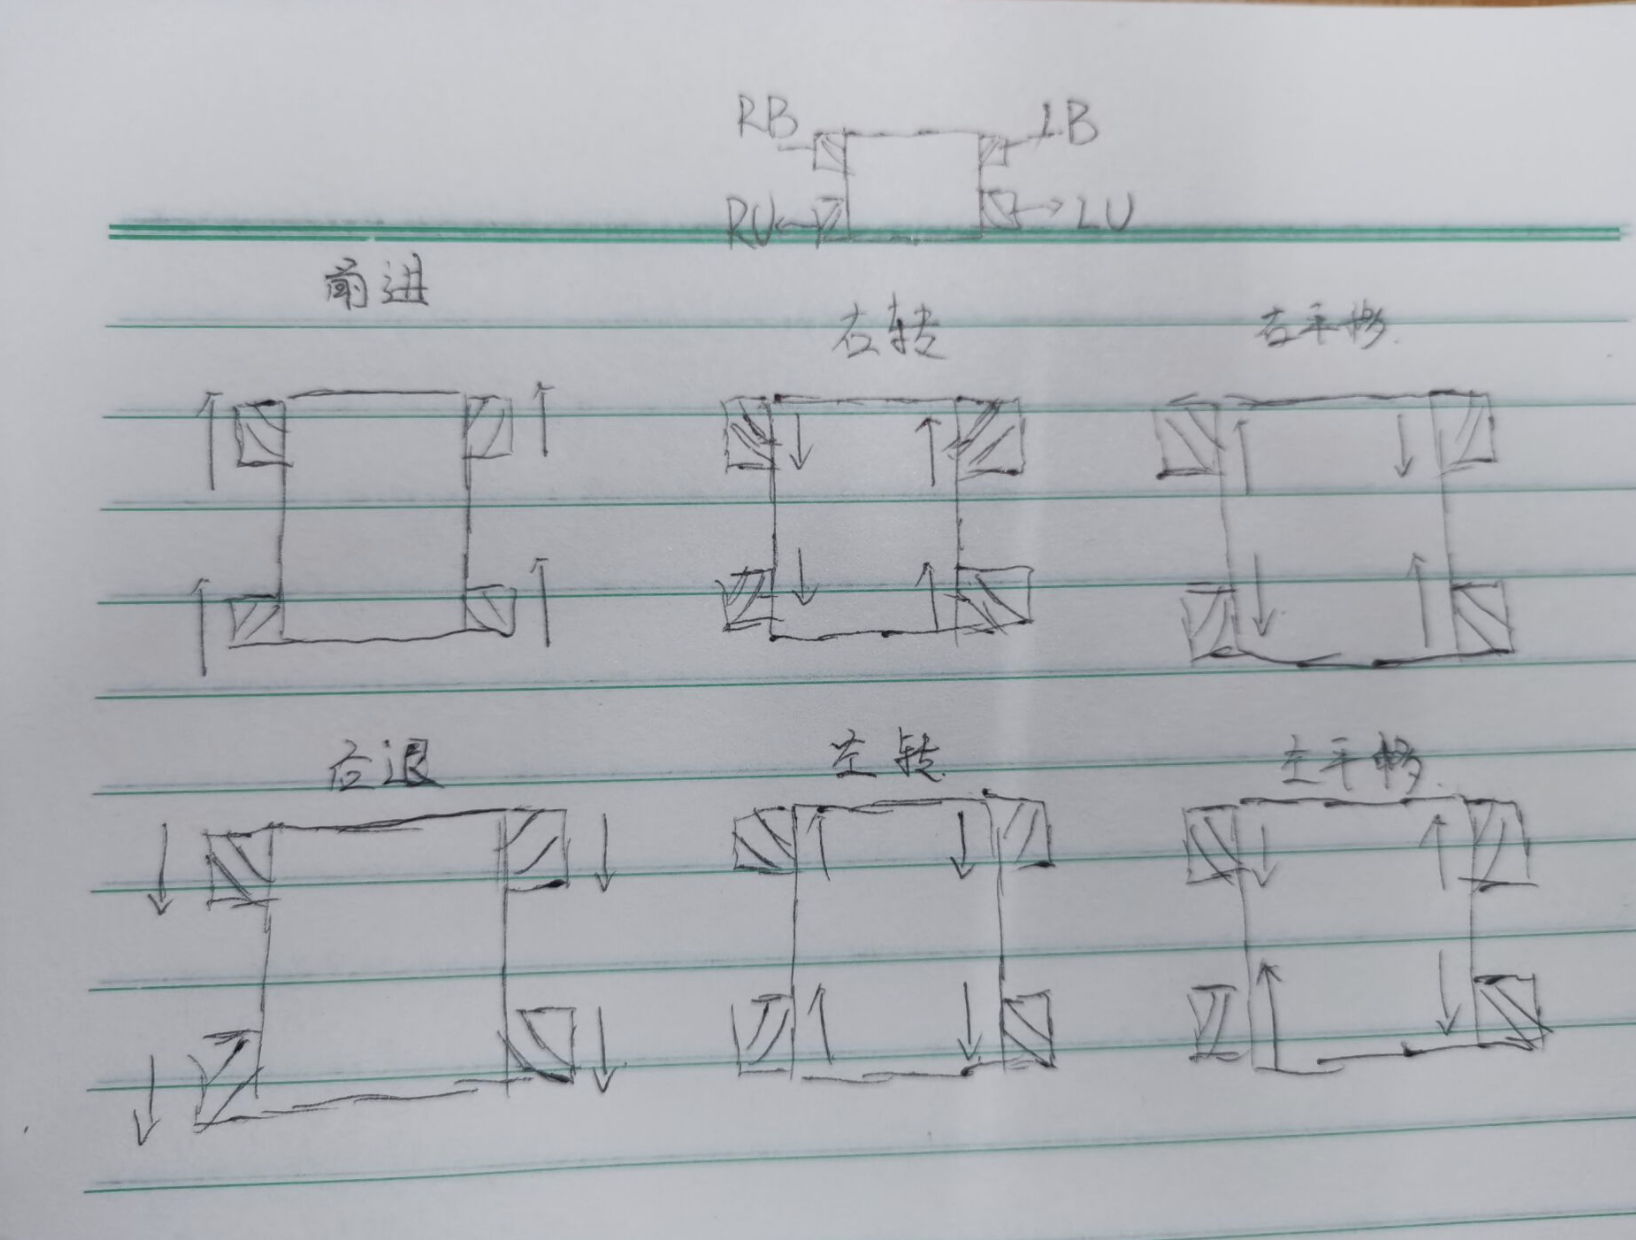 RB LB
RU LU
前进
右转 右平移
后退 左转 左平移